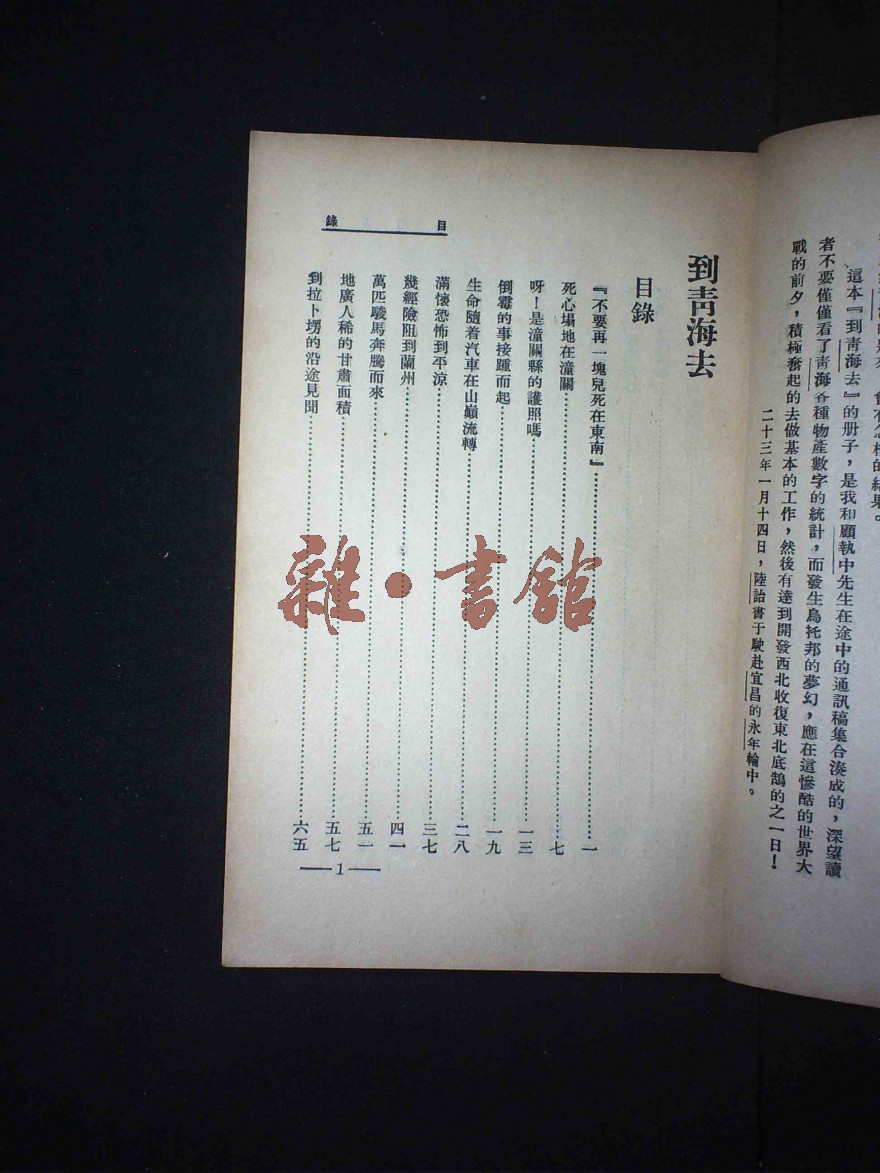 這本『到靑海去』的册子，是我和顧執中先生在途中的通訊稿集合湊成的，深望讀
者不要僅僅看了靑海各種物產數字的統計，而發生烏托邦的夢幻，應在這慘酷的世界大
戰的前夕，積極奮起的去做基本的工作，然後有達到開發西北收復東北底鵠的之一日！
二十三年一月十四日，陸詒書于駛赴宜昌的永年輪中。
目錄
到靑海去
目錄
『不要再一塊兒死在東南』……一
死心塌地在潼關……七
呀！是潼關縣的護照嗎……一三
倒霉的事接踵而起……一九
生命隨着汽車在山巔流轉……二八
滿懷恐怖到平涼……三七
幾經險阻到蘭州……四一
萬匹駿馬奔騰而來……五一
地廣人稀的甘肅面積……五七
到拉卜塄的沿途見聞……六五
—1—
雜·書館